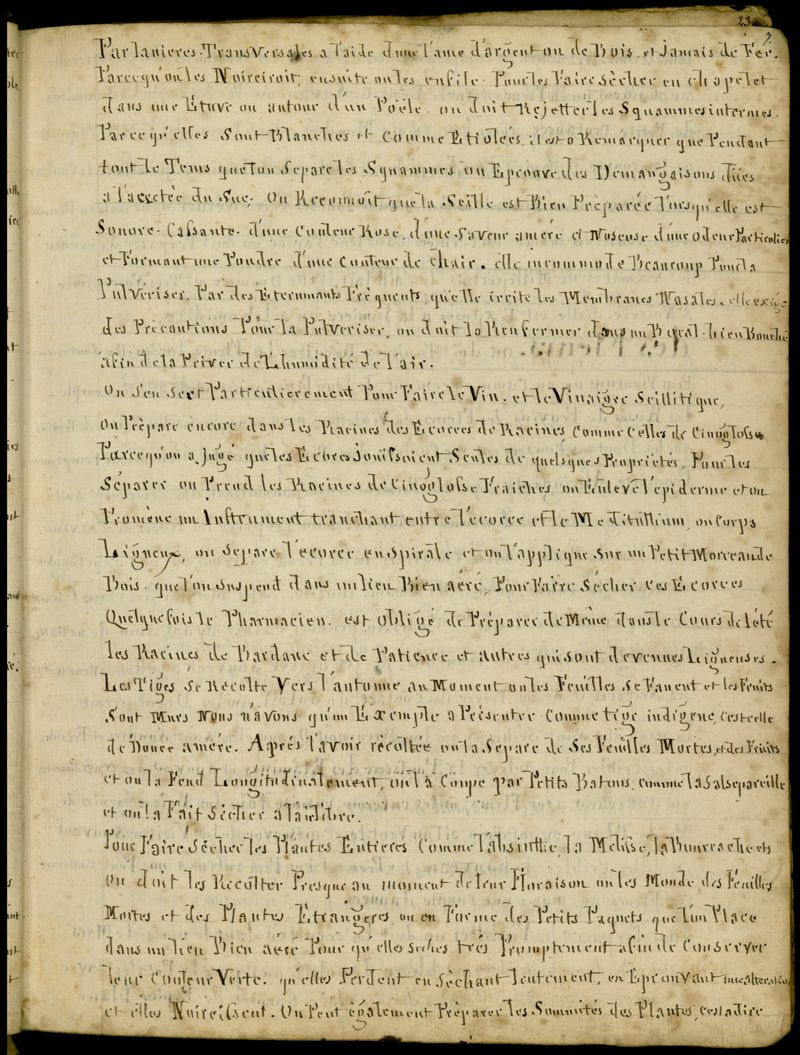 23
Par lanieres Transversales a l'aide d'une l'ame d'argent ou de Bois. et Jamais de Fer.
Parcequ'on les Noirciroit, ensuite on les enfile Pour les Faire Sècher en chapelet
dans une Etuve ou autour d'un Poële. on doit Rejetter les Squammes internes.
Parce qu'elles Sont Blanches et Comme Etiolées, il est a Remarquer que Pendant
tout le Tems que l'on Separe les Squammes on Eprouve des Demangaisons dües
a l'acreté du Suc, On Reconnoit que la Scille est Bien Préparée lorsqu'elle est
Sonore. Cassante. d'une Couleur Rose, d'une Saveur amère et Noseuse d'une odeur Particulière
et Formant une Poudre d'une Couleur de chair. elle incommode Beaucoup Pour la
Pulvériser. Par des Eternuments Fréquents qu'elle irrite les Membranes Nasales, elle exige
des Précautions Pour la Pulveriser, on doit la Renfermer dans un Bocal bien Bouché
afin de la Priver de L'humidité de l'air.
On s'en Sert Particulierement Pour Faire le Vin. et le Vinaigre Scillitique,
On Prépare encore dans les Racines des Ecorces de Racines Comme Celles de Cinoglosse
Parcequ'on a jugé que les Ecorces Jouissoient Seules de quelques Proprietés, Pour les
Séparer on Prend les Racines de Cinoglosse Fraiches on Enleve l'epiderme et on
Promène un Instrument tranchant entre l'ecorce et le Meditullium, ou Corps
Ligneux, on Sépare l'ecorce en Spirale et on l'applique Sur un Petit Morceau de
Bois. que l'on Suspend dans un lieu Bien aéré, Pour Faire Sécher ces Ecorces
Quelquefois le Pharmacien. est obligé de Préparer de Même dans le Cours de l'été
les Racines de Bardane et de Patience et autres qui sont devenues Ligneuses.
Les Tiges Se Récolte Vers l'automne au Moment ou les Feuilles Se Fanent et les Fruits
Sont Murs Nous n'avons qu'un Exemple a Présenter Comme tige indigène, c'est celle
de Douce amère. Après l'avoir récoltée on la Separe de Ses Feuilles Mortes, et des Fruits
et on la Fend Longitudinalement, on l'a Coupe par Petits Batons, comme la Salsepareille
et on la Fait Sècher a l'air libre.
Pour Faire Sècher les Plantes Entieres Comme l'absinthe, la Mélisse, la Bourrache etc
On doit les Récolter Presque au moment de leur Floraison on les Monde des Feuilles
Mortes et des Plantes Etrangeres on en Forme des Petits Paquets que l'on Place
dans un lieu Bien aéré Pour qu'elles seches très Promptement afin de Conserver
leur Couleur Verte. qu'elles Perdent en Sèchant lentement, en Eprouvant une alteration
et elles Noircissent. On Peut également Préparer les Sommités des Plantes, c'est a dire